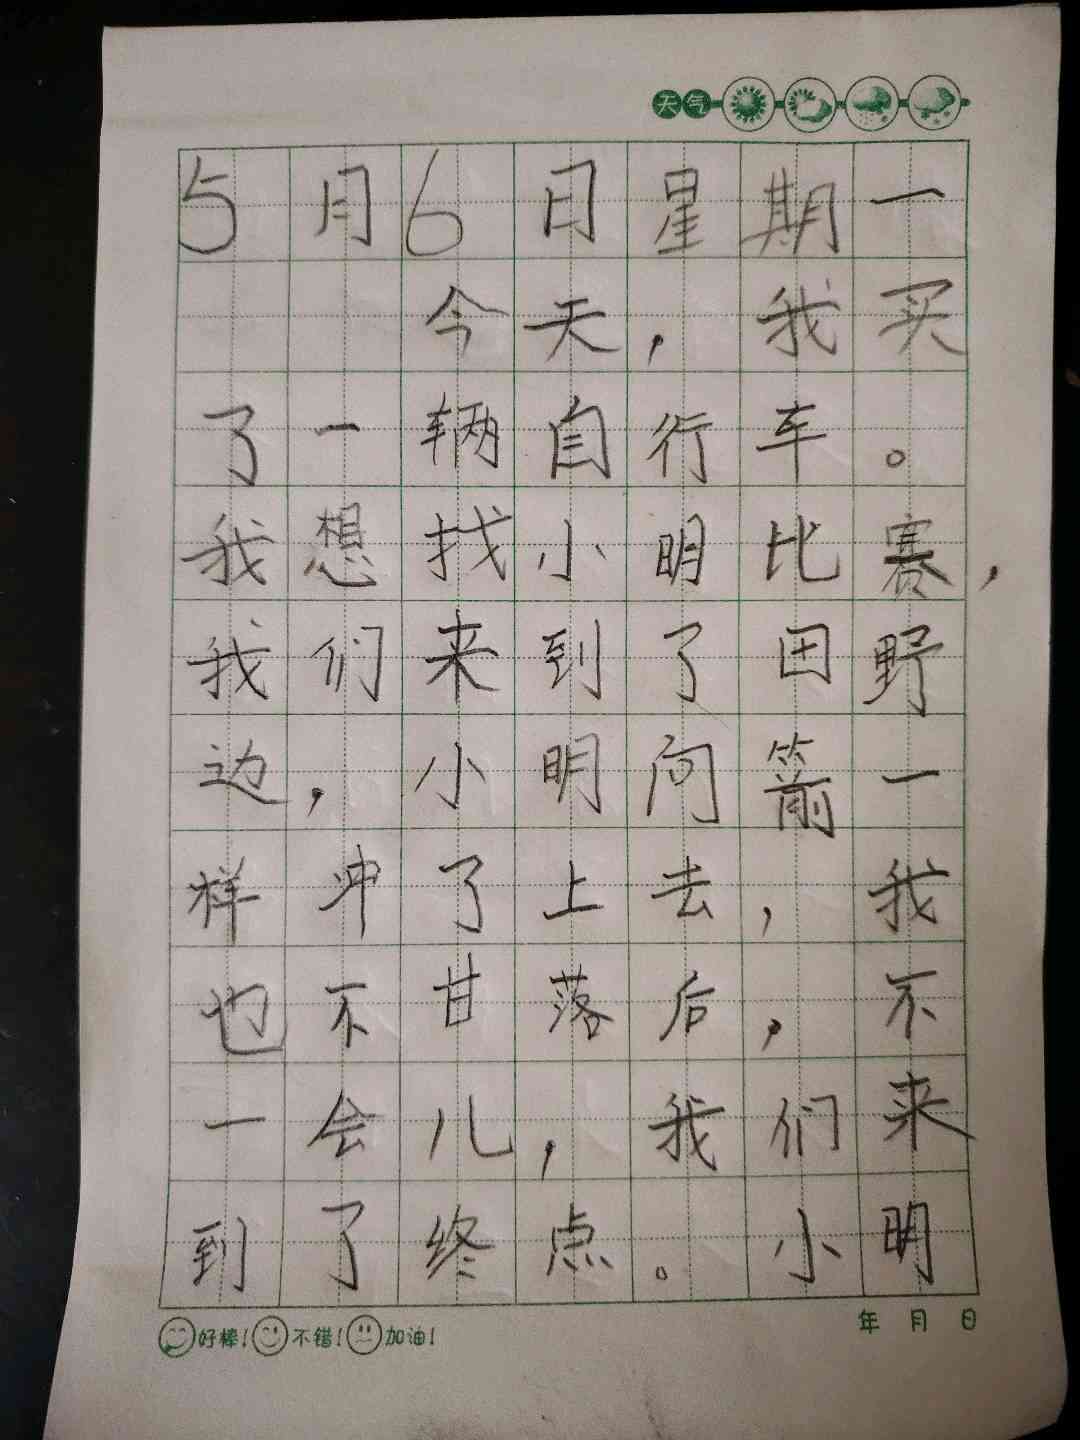 天气
5月6日星期一
今天，我买
了一辆自行车。
我想找小明比赛，
我们来到了田野
边，小明问箭一
样冲了上去，我
也不甘落后，不
一会儿，我们来
到了终点。小明
好棒！不错！加油！ 年 月 日